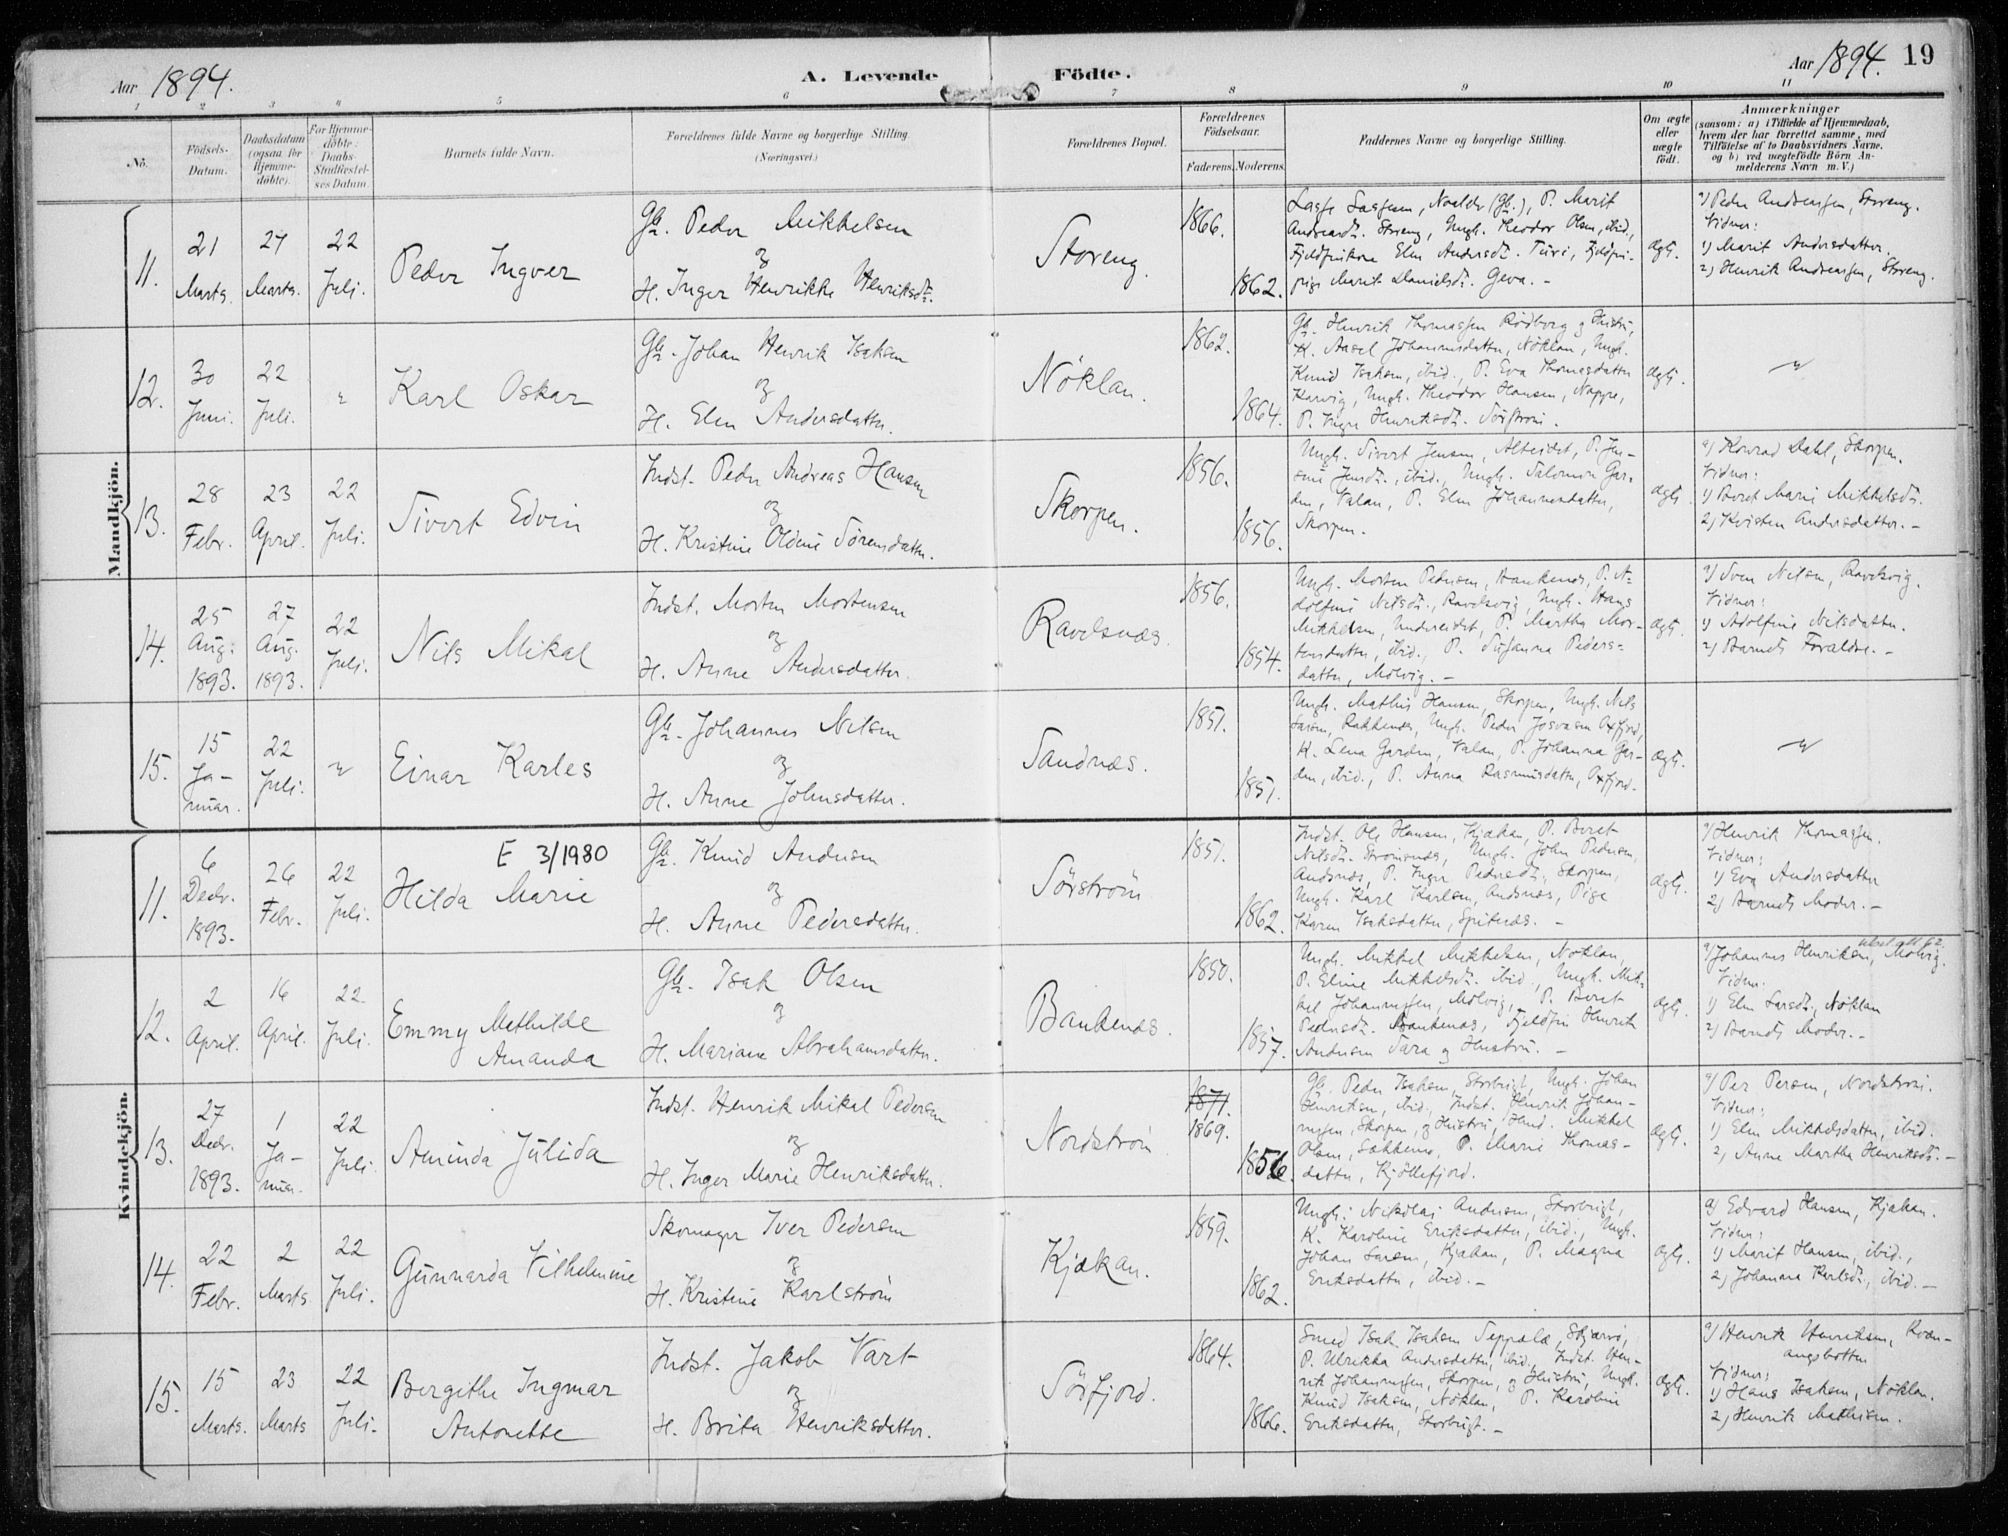 Aar 1894.
A. Levende Födte.
Aar 1894. 19
1 2 3 4 5 6 7 8 9 10 11
No.
Födsels-Datum.
Daabsdatum (ogsaa for Hjemme-döbte).
For Hjemme-döbte: Daabs-Stadfæstel-ses Datum.
Barnets fulde Navn.
Forældrenes fulde Navne og borgerlige Stilling.
(Næringsvei.)
Forældrenes Bopæl.
Forældrenes Födselsaar.
Faderens. Moderens.
Faddernes Navne og borgerlige Stilling.
Om ægte eller uægte födt.
Anmærkninger
(saasom: a) i Tilfælde af Hjemmedaab,
hvem der har forrettet samme, med
Tilföielse af to Daabsvidners Navne.
og b) ved uægtefödte Börn An-
melderens Navn m. V.)
Mandkjön.
11.
21 Marts.
27 Marts.
22 Juli.
Peder Ingver
Gbr. Peder Mikkelsen
og
H. Inger Henrikke Henriksdtr.
Storeng.
1866.
1862.
Andreasdtr. Storeng, Ungk. Theodor Olsen, ibid.,
ægt.
a) Peder Andreassen, Storeng.
Vidner:
1) Marit Andersdatter.
2) Henrik Andreassen, Storeng.
12.
30 Juni.
22 Juli.
"
Karl Oskar
Gbr. Johan Henrik Isaksen
og
H. Elen Andersdatter.
Nöklan.
1862.
1864.
Gbr. Henrik Thomassen Rödberg og Hustru,
K. Aasel Johannesdatter, Nöklan, Ungk.
Knud Isaksen, ibid., P. Eva Thomasdatter
Karvig, Ungk. Theodor Hansen, Nappe,
P. Inger Henriksdtr. Sörström.
ægt.
"
13.
28 Febr.
23 April.
22 Juli.
Sivert Edvin
Indst. Peder Andreas Hansen
og
H. Kristine Oldine Sörensdatter.
Skorpen.
1856.
1856.
Ungk. Sivert Jensen, Alteidet, P. Jen-
sine Jensdtr., ibid., Ungk. Salomon Gar-
den, Valan, P. Elen Johannesdatter,
Skorpen.
ægt.
a) Konrad Dahl, Skorpen.
Vidner:
1) Beret Marie Mikkelsdtr.
2) Kristen Andersdatter.-
14.
25 Aug. 1893.
27 Aug. 1893.
22 Juli.
Nils Mikal
Indst. Morten Mortensen
og
H. Anne Andersdatter.
Ravelsnæs.
1856.
1854.
Ungk. Morten Pedersen, Bankenæs, P. A-
dolfine Nilsdtr., Ravelsvig, Ungk. Hans
Mikkelsen, Undereidet, P. Martha Mor-
tensdatter, ibid., P. Susanna Peders-
datter, Molvig.-
ægt.
a) Sven Nilsen, Ravelsvig.
Vidner:
1) Adolfine Nilsdatter.
2) Barnets Forældre.-
15.
15 Ja-nuar.
22 Juli.
"
Einar Karles
Gbr. Johannes Nilsen
og
H. Anne Johnsdatter.
Sandnæs.
1851.
1851.
Ungk. Mathis Hansen, Skorpen, Ungk. Nils
Larsen, Rakkenæs, Ungk. Peder Josvasen Oxfjord,
K. Lena Garden, Valan, P. Johanna Gar-
den, ibid., P. Anna Rasmusdatter, Oxfjord.
ægt.
"
Kvindekjön.
11.
6 Decbr. 1893.
26 Febr.
22 Juli.
E 3/1980
Hilda Marie
Gbr. Knud Andersen
og
H. Anne Pedersdatter.
Sörström
1851.
1862.
Indst. Ole Hansen, Kjækan, P. Beret
Nilsdtr. Strömsnæs, Ungk. John Pedersen,
Andsnæs, P. Inger Pedersdtr., Skorpen,
Ungk. Karl Karlsen, Andsnæs, Pige
Karen Isaksdatter, Spitenæs.-
ægt.
a) Henrik Thomassen.
Vidner:
1) Eva Andersdatter
2) Barnets Moder.-
12.
2 April.
16 April.
22 Juli.
Emmy Mathilde
Amanda
Gbr. Isak Olsen
og
H. Mariane Abrahamsdatter.
Bankenæs.
1850.
1857.
Ungk. Mikkel Mikkelsen, Nöklan,
P. Eline Mikkelsdtr. ibid., Ungk. Mik-
kel Johannessen, Molvig, P. Beret
Pedersdtr. Bankenæs, Fjeldfin Henrik
Andersen Sara og Hustru.-
ægt.
a) Johannes Henriksen, Molvig.
Vidner:
1) Elen Larsdtr., Nöklan
2) Barnets Moder.-
13.
27 Decbr. 1893.
1 Ja-nuar.
22 Juli.
Aminda Julida
Indst. Henrik Mikal Pedersen
og
H. Inger Marie Henriksdatter.
Nordström
1871.
1869.
1856.
Gbr. Peder Isaksen, Storbugt, Ungk. Johan
Henriksen, ibid., Indst. Henrik Johan-
nessen, Skorpen, og Hustru, Mikkel
Olsen, P. Marie Thomas-
datter, Kjöllefjord.
ægt.
a) Per Persen, Nordström.
Vidner:
1) Elen Mikkelsdatter, ibid.
2) Anne Martha Henriksdtr.-
14.
22 Febr.
2 Marts
22 Juli.
Gunnarda Vilhelmine
Skomager Iver Pedersen
og
H. Kristine Karlström
Kjækan.
1859.
1862.
Ungk: Nikolai Andersen, Storbugt,
K. Karoline Eriksdatter, ibid., Ungk.
Johan Larsen, Kjækan, P. Magna
Eriksdatter, ibid.-
ægt.
a) Edvard Hansen, Kjækan.
Vidner:
1) Marit Hansen, ibid.,
2) Johanna Karlsdtr., ibid.-
15.
15 Marts.
23 Marts
22 Juli.
Bergithe Ingmar
Antonette
Indst. Jakob Vart
og
H. Brita Henriksdatter.
Sörfjord.
1864.
1866.
Smed Isak Isaksen Seppälä, Skjærvö,
P. Ulrikka Andersdatter, ibid., Indst. Hen-
rik Johannessen, Skorpen, og Hustru, Ungk.
Knud Isaksen, Nöklan, P. Karoline
Eriksdatter, Storbugt.-
ægt.
a) Henrik Henriksen, Kvæn-
angsbotten
Vidner:
1) Hans Isaksen, Nöklan.
2) Henrik Mathisen.